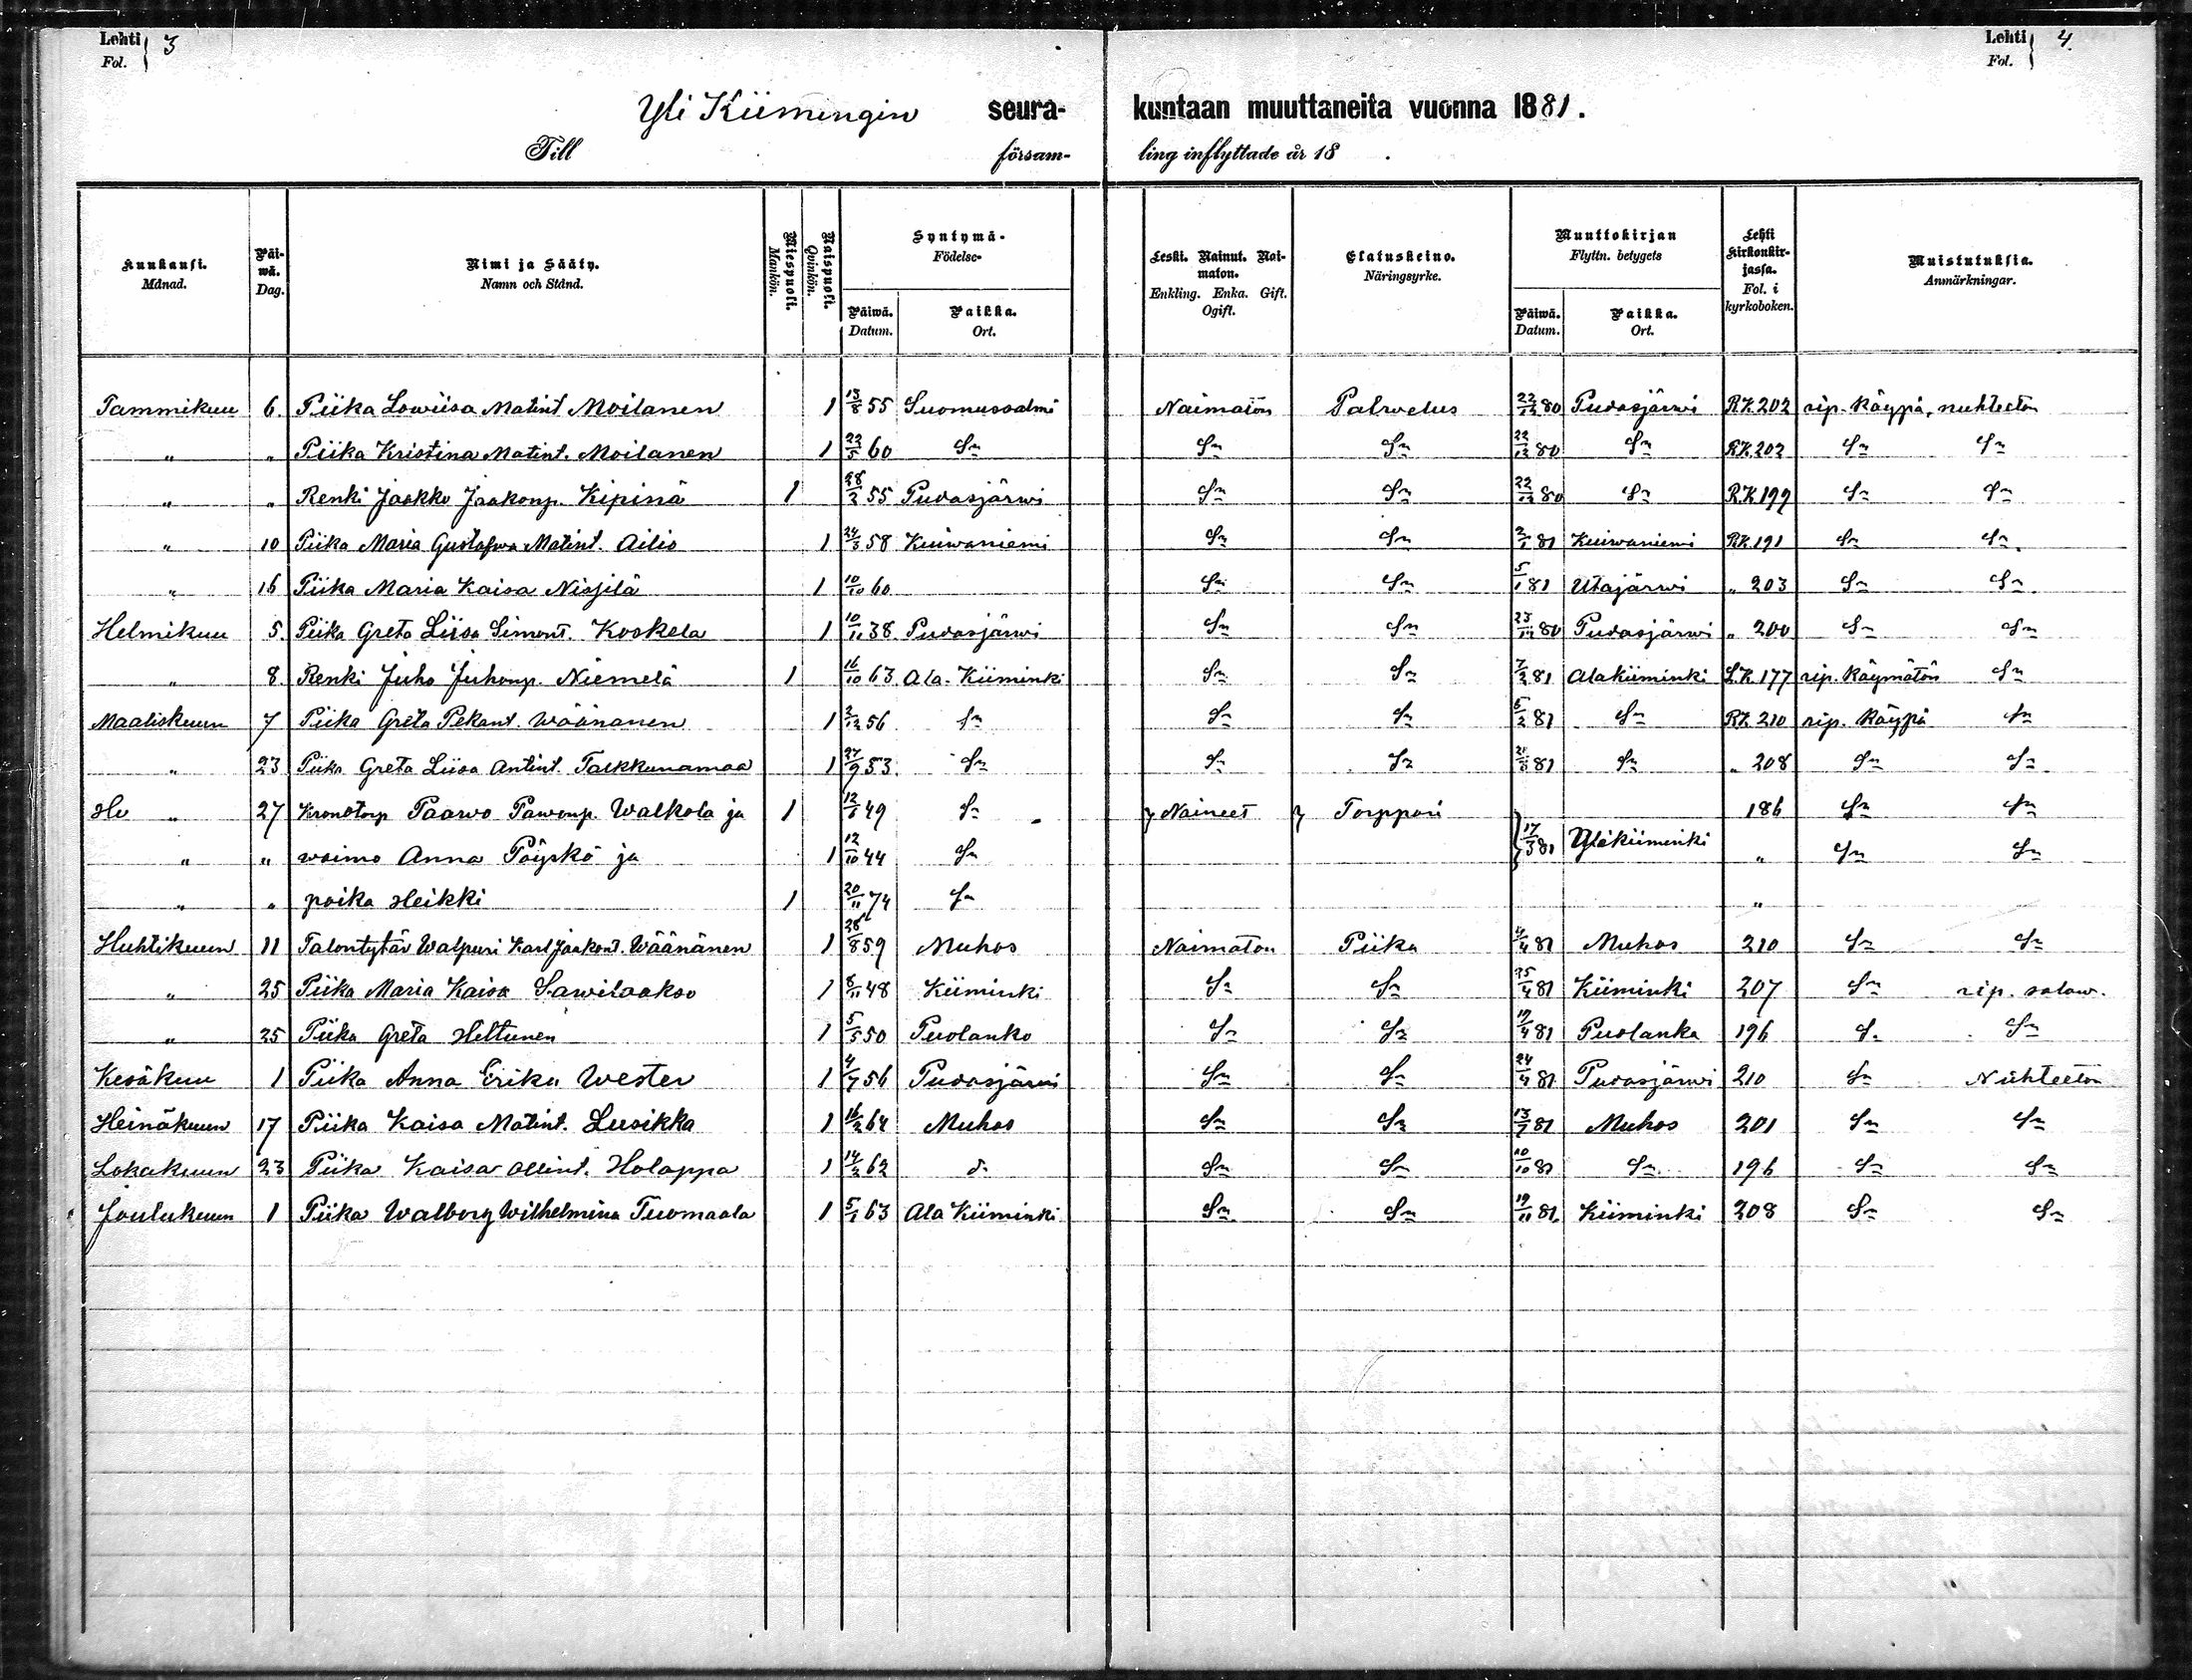 Lehti Fol. 3
Lehti Fol. 4
Yli Kiimingin seura- kuntaan muuttaneita vuonna 1881.
Till försam- ling inflyttade år 18 .
Kuukausi. Månad. | Päi-wä. Dag. | Nimi ja Sääty. Namn och Stånd. | Miespuoli. Mankön. | Naispuoli. Qvinkön. | Syntymä- Födelse- Päiwä. Datum. | Paikka. Ort. | Leski. Nainut. Nai-maton. Enkling. Enka. Gift. Ogift. | Elatuskeino. Näringsyrke. | Muuttokirjan Flyttn. betygets Päiwä. Datum. | Paikka. Ort. | Lehti Kirkonkir-jassa. Fol. i kyrkoboken. | Muistutuksia. Anmärkningar.
Tammikuu 6. Piika Lowiisa Matint Moilanen 1 13/8 55 Suomussalmi Naimatön Palvelus 22/12 80 Pudasjärwi RK.202 rip. käypä, nuhteeton
" " Piika Kristina Matint. Moilanen 1 22/5 60 Sn Sn Sn 22/12 80 Sn RK.202 Sn Sn
" " Renki Jaakko Jaakonp. Kipinä 1 28/2 55 Pudasjärwi Sn Sn 22/12 80 Sn RK.199 Sn Sn
" 10 Piika Maria Gustafwa Matint. Ailio 1 24/3 58 Kuiwaniemi Sn Sn 2/1 81 Kuiwaniemi RK.191 Sn Sn
" 16 Piika Maria Kaisa Nissilä 1 10/10 60 Sn Sn 5/1 81 Utajärwi " 203 Sn Sn
Helmikuu 5. Piika Greta Liisa Simont. Koskela 1 10/11 38 Pudasjärwi Sn Sn 23/12 80 Pudasjärwi " 200 Sn Sn
" 8. Renki Juho Juhonp. Niemelä 1 16/10 63 Ala-Kiiminki Sn Sn 7/2 81 Alakiiminki L.K.177 rip. käymätön Sn
Maaliskuun 7 Piika Greta Pekant. Wäänanen 1 2/12 56 Sn Sn Sn 6/2 81 Sn RK.210 rip. käypä Sn
" 23 Piika Greta Liisa Antint. Tarkkunamaa 1 27/9 53 Sn Sn Sn 21/3 81 Sn " 208 Sn Sn
" 27 Kronotorp Paawo Pawonp. Walkola ja 1 12/6 49 Sn Naineet Torppari 17/3 81 Ylikiiminki 186 Sn Sn
" " waimo Anna Pöyskö ja 1 12/10 44 Sn " Sn Sn
" " poika Heikki 1 20/11 74 Sn "
Huhtikuun 11 Talontytär Walpuri Karl Jaakont. Wäänänen 1 28/8 59 Muhos Naimaton Piika 4/4 81 Muhos 210 Sn Sn
" 25 Piika Maria Kaisa Sawilaakso 1 8/11 48 Kiiminki Sn Sn 25/4 81 Kiiminki 207 Sn rip. salaw.
" 25 Piika Greta Heltunen 1 5/5 50 Puolanko Sn Sn 19/4 81 Puolanka 196 S. Sn
Kesäkuu 1 Piika Anna Erika Wester 1 4/7 56 Pudasjärwi Sn Sn 24/4 81 Pudasjärwi 210 Sn Nuhteeton
Heinäkuun 17 Piika Kaisa Matint. Lusikka 1 16/2 64 Muhos Sn Sn 13/7 81 Muhos 201 Sn Sn
Lokakuun 23 Piika Kaisa Ollint. Holappa 1 14/2 62 d. Sn Sn 10/10 81 Sn 196 Sn Sn
Joulukuun 1 Piika Walborg Wilhelmina Tuomaala 1 5/1 63 Ala Kiiminki Sn Sn 19/11 81 Kiiminki 208 Sn Sn